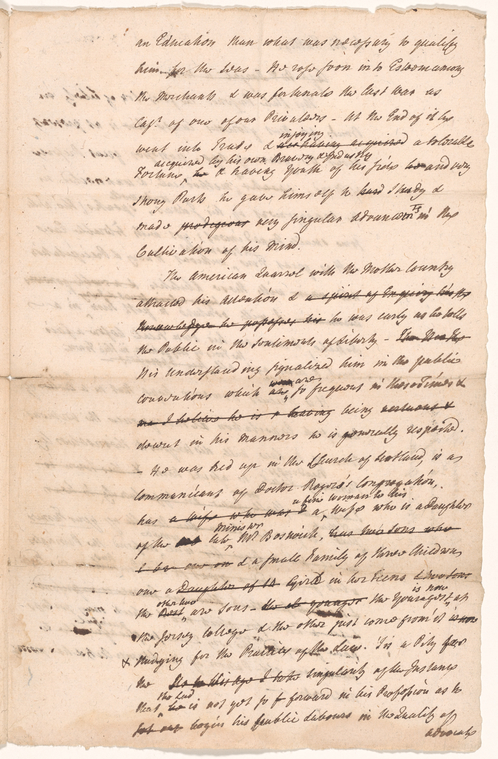 an Education than what was necessary to qualify
him for the Seas - He rose soon into Esteem among
the Merchants & was fortunate the last war as
Capt of one of our Privateers - At the End of it he
went into Trade & enjoying a tolerable
acquired by his own Bravery & Industry
Fortune, & having Youth of his side and very
strong Parts he gave himself to hard Study &
made prodigious very singular advances in the
Cultivation of his mind.
The American Quarrel with the Mother Country
attracted his attention & a spirit of
knowledge he possesses he was early as he tells
the Public in the Sentiments of Liberty -
His Understanding signalized him in the public
conventions which are so frequent in these Times &
I believe he is a being
decent in his manners he is generally respected.
- He was bred up in the Church of Scotland, is a
communicant of Doctor Rogers's Congregation,
has a wife who was a fine woman to his wife who is a Daughter
of the late minister Mr Bostwick, has two sons who
& a small Family of three Children
one a Daughter Girl in her Teens
the other two are Sons - the youngest is now at
the Jersey College & the other just comes from it &
& studying for the Practice of the Law. Tis a Pity for
the singularity of the Instance
that the Lad is not got so forward in his Profession as to
begin his public Labours in the Quality of
advocate